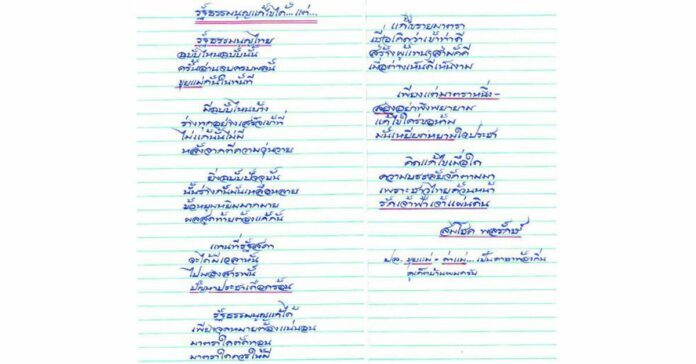 รัฐธรรมนูญแก้ไขได้...แต่...
รัฐธรรมนูญไทย
ฉบับไหนฉบับนั้น
ครั้นอ่านจบครบพลัน
ขุยแม่กันในทันที
มีฉบับไหนบ้าง
ร่างทุกอย่างเสร็จเข้าที่
ไม่แก้นั้นไม่มี
หลังจากตีความวุ่นวาย
ยิ่งฉบับปัจจุบัน
นั้นร่างกันมันเหลือหลาย
ข้อหยุมหยิมมากมาย
ผลสุดท้ายต้องแก้กัน
แทนที่รัฐสภา
จะได้มีเวลานั้น
ไปผลงสารพัน
ปัญหาประชาเดือดร้อน
รัฐธรรมนูญแก้ได้
เพียงจุดหมายต้องแน่นอน
มาตราใดตัดทอน
มาตราใดควรให้มี
แก้ไขรายมาตรา
เชื่อเถิดว่าเข้าท่าดี
สร้างผู้แทนฯสามัคคี
เมื่อต่างเห็นดีเห็นงาม
เพียงแต่มาตราหนึ่ง-
สองอย่าพึงพยายาม
แก้ไขใคร่ขอห้าม
มันเหยียบหยามใจประชา
คิดแก้ไขเมื่อใด
ความบรรลัยจักตามมา
เพราะชาวไทยถ้วนหน้า
รักเจ้าฟ้าเจ้าแผ่นดิน
สมโชค พลรักษ์
ปล. ขุยแม่ = ด่าแม่... เป็นภาษาท้องถิ่น
ภูเก็ตบ้านผมครับ